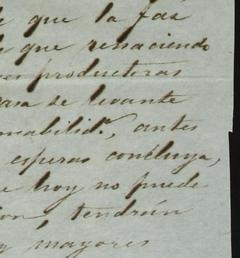 que la faz
que renaciendo
productoras
casa se levante
nabilid.ᵈ, antes
esperas concluya,
e hoy no puede
ion, tendrán
y mayores